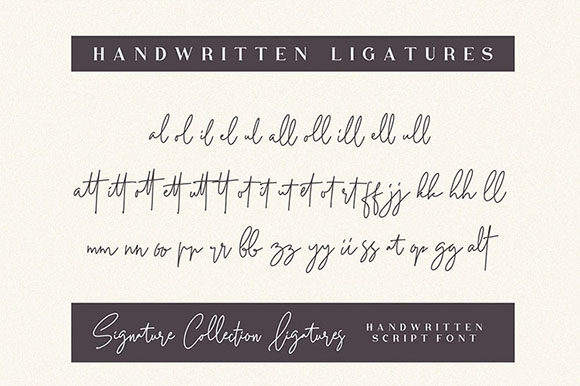 HANDWRITTEN LIGATURES
al ol il el ul all oll ill ell ull
att itt ott ett utt tt ot it ut et ot rt ff jj kk hh ll
mm nn oo pp rr bb zz yy ii ss at op gg alt
Signature Collection ligatures
HANDWRITTEN
SCRIPT FONT